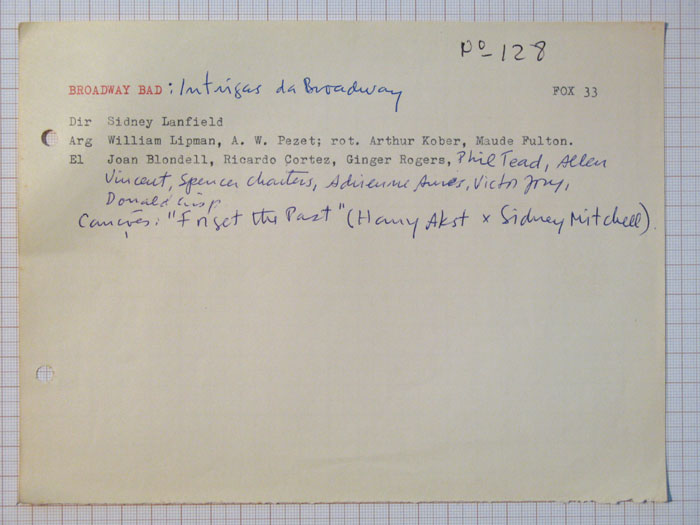 Pº-128
BROADWAY BAD : Intrigas da Broadway FOX 33
Dir Sidney Lanfield
Arg William Lipman, A. W. Pezet; rot. Arthur Kober, Maude Fulton.
El Joan Blondell, Ricardo Cortez, Ginger Rogers, Phil Tead, Allen
Vincent, Spencer Charters, Adrienne Ames, Victor Jory,
Donald Crisp
Canções: "Forget the Past" (Harry Akst x Sidney Mitchell).